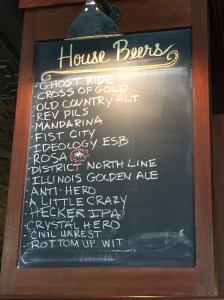 House Beers
- GHOST RIDE
- CROSS OF GOLD
- OLD COUNTRY ALT
- REV PILS
- MANDARINA
- FIST CITY
- IDEOLOGY ESB
- ROSA
- DISTRICT NORTH LINE
- ILLINOIS GOLDEN ALE
- ANTI-HERO
- A LITTLE CRAZY
- HECKER IPA
- CRYSTAL HERO
- CIVIL UNREST
- BOTTOM UP WIT